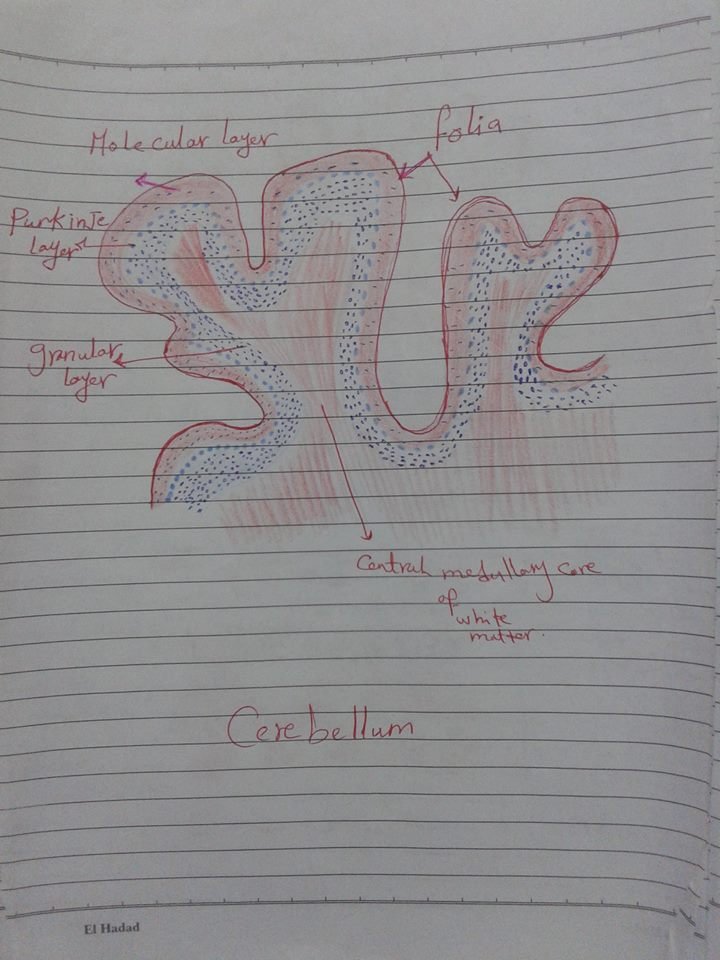 Molecular layer
folia
Purkinje
layer
granular
layer
Central medullary core
of
white
matter.
Cerebellum
El Hadad